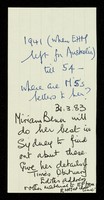 1941 (when EHM
left for Australia)
till 54 —
where are M53
letters to her?
31.3.83
Miriam Benn will
do her best in
Sydney to find
out about these.
Give her details of
Times Obituary